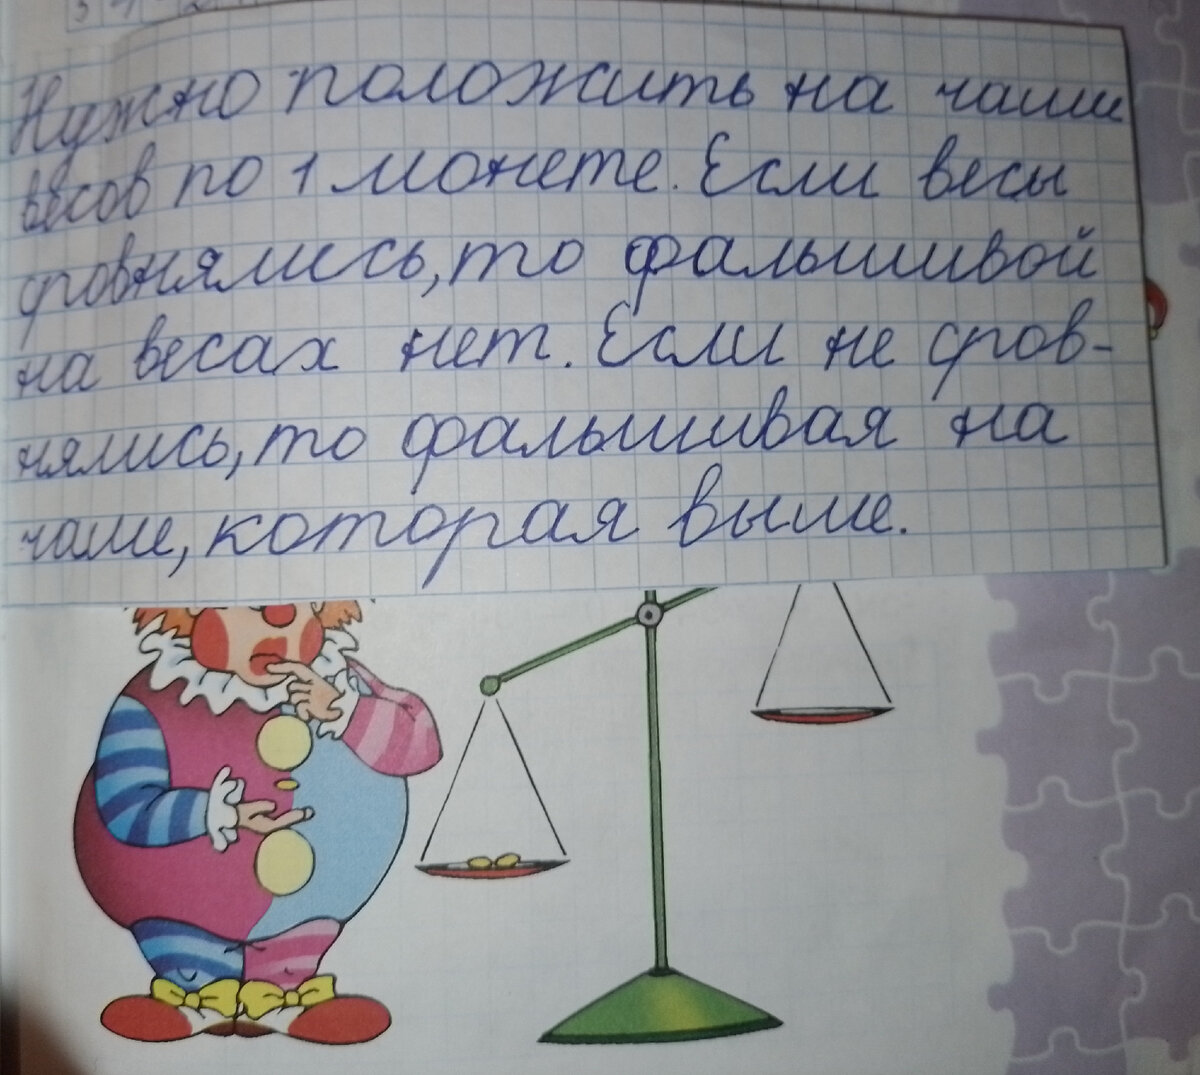 Нужно положить на чаши
весов по 1 монете. Если весы
сровнялись, то фальшивой
на весах нет. Если не сров-
нялись, то фальшивая на
чаше, которая выше.